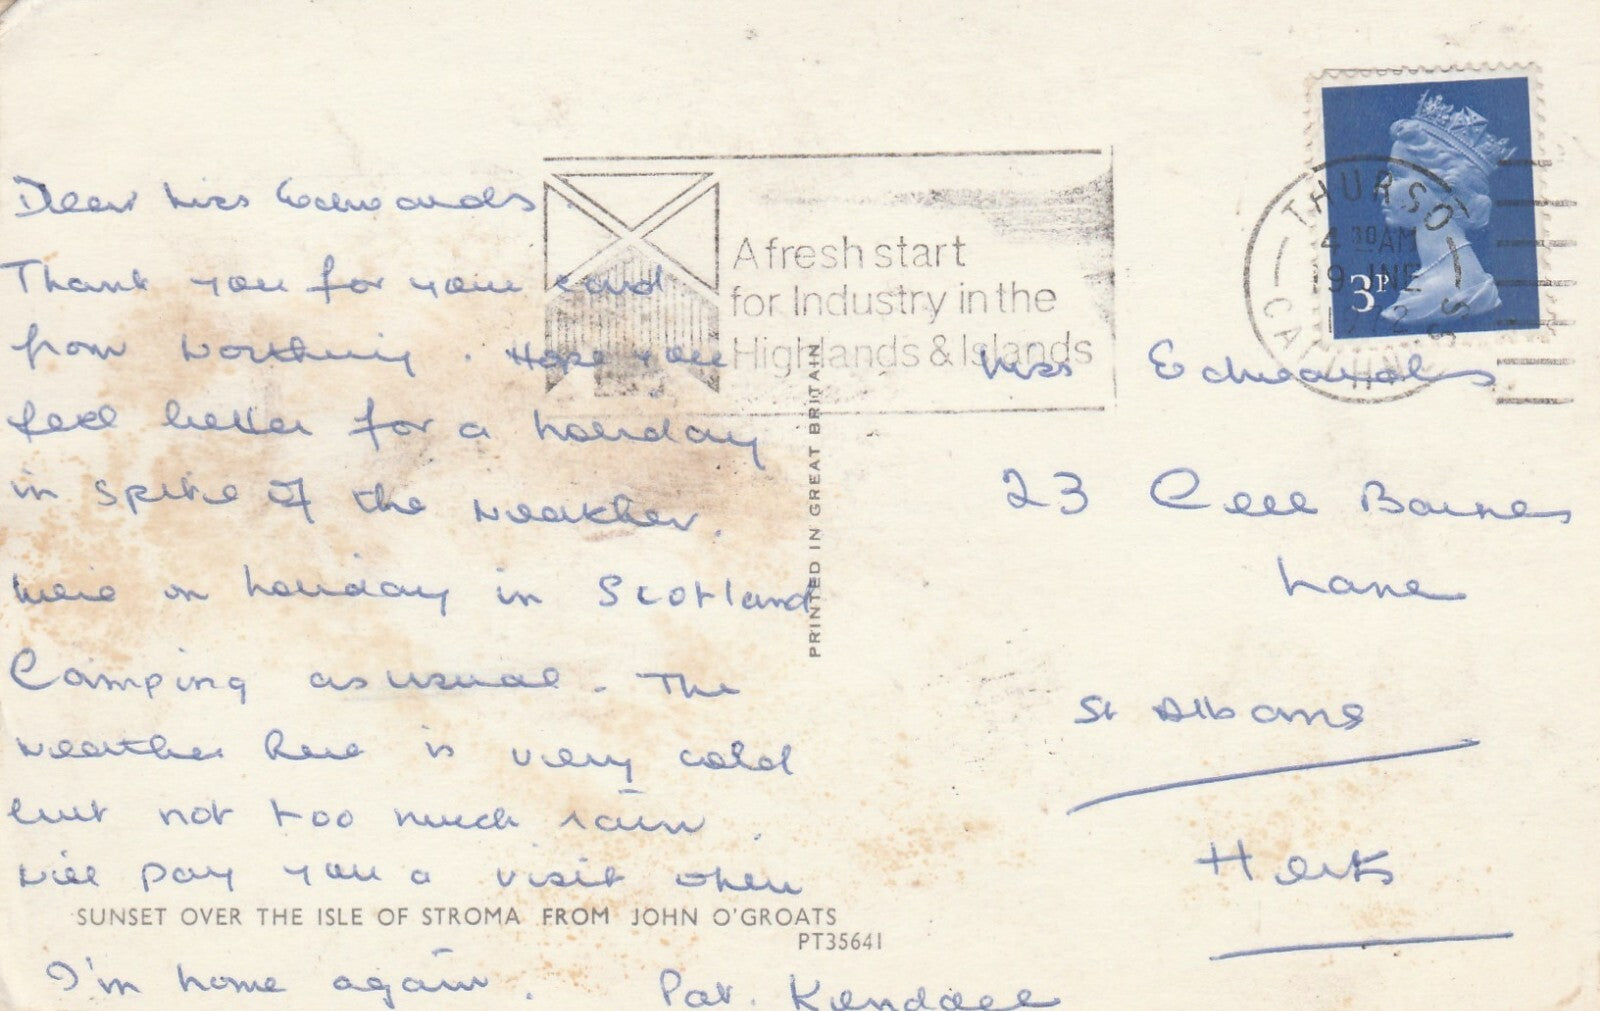 Dear Miss Edwards.
Thank you for your card
from Worthing. Hope you
feel better for a holiday
in spite of the weather.
We're on holiday in Scotland
Camping as usual. The
weather here is very cold
but not too much rain.
Will pay you a visit when
I'm home again. Pat. Kendall
SUNSET OVER THE ISLE OF STROMA FROM JOHN O'GROATS
PT35641
PRINTED IN GREAT BRITAIN
A fresh start
for Industry in the
Highlands & Islands
THURSO
4 30 AM
19 JNE
1972
CAITHNESS
3P
Miss Edwards
23 Cell Barnes
Lane
St Albans
Herts